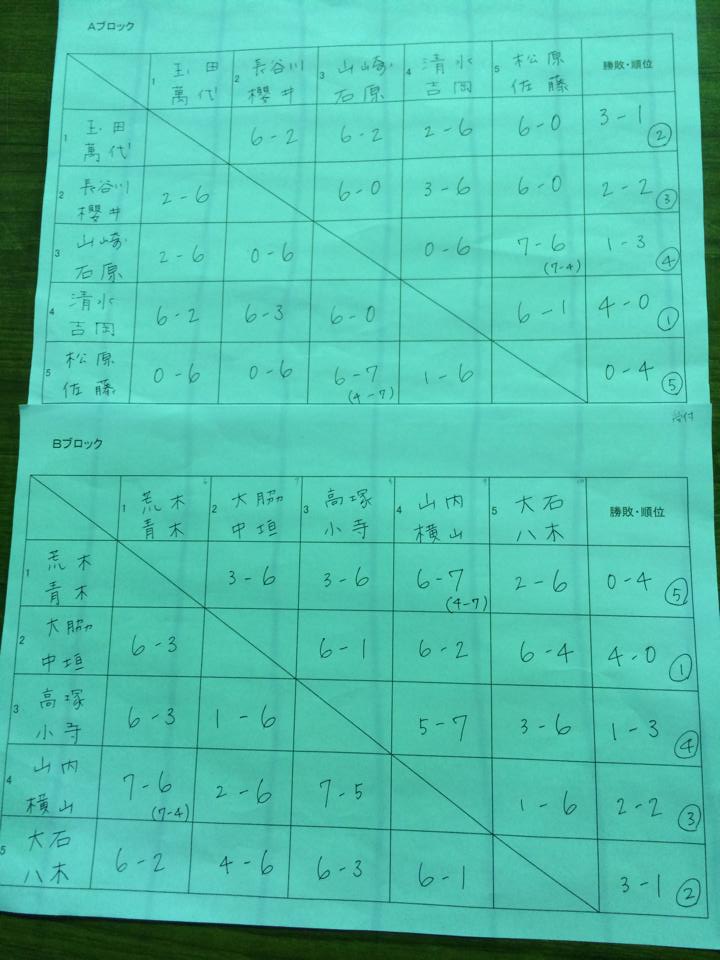 Aブロック
1 玉田 2 長谷川 3 山崎 4 清水 5 松原 勝敗・順位
萬代 櫻井 石原 吉岡 佐藤
1 玉田 6-2 6-2 2-6 6-0 3-1 ②
萬代
2 長谷川 2-6 6-0 3-6 6-0 2-2 ③
櫻井
3 山崎 2-6 0-6 0-6 7-6 1-3 ④
石原 (7-4)
4 清水 6-2 6-3 6-0 6-1 4-0 ①
吉岡
5 松原 0-6 0-6 6-7 1-6 0-4 ⑤
佐藤 (4-7)
受付
Bブロック
6 7 8 9 10
1 荒木 2 大脇 3 高塚 4 山内 5 大石 勝敗・順位
青木 中垣 小寺 横山 八木
1 荒木 3-6 3-6 6-7 2-6 0-4 ⑤
青木 (4-7)
2 大脇 6-3 6-1 6-2 6-4 4-0 ①
中垣
3 高塚 6-3 1-6 5-7 3-6 1-3 ④
小寺
4 山内 7-6 2-6 7-5 1-6 2-2 ③
横山 (7-4)
5 大石 6-2 4-6 6-3 6-1 3-1 ②
八木